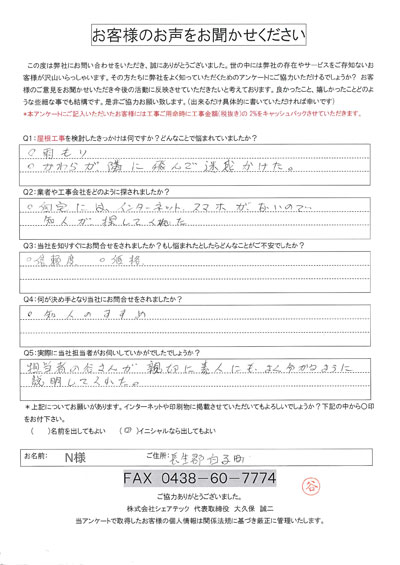 お客様のお声をお聞かせください
この度は弊社にお問い合わせをいただき、誠にありがとうございました。世の中には弊社の存在やサービスをご存知ないお
客様が沢山いらっしゃいます。その方たちに弊社をよく知っていただくためのアンケートにご協力いただけるでしょうか? お客
様のご意見をお聞かせいただき今後の活動に反映させていただきたいと考えております。良かったこと、嬉しかったことどのよ
うな些細な事でも結構です。是非ご協力お願い致します。(出来るだけ具体的に書いていただければ幸いです)
*本アンケートにご記入いただいたお客様には工事ご用命時に工事金額(税抜き)の2%をキャッシュバックさせていただきます。
Q1:屋根工事を検討したきっかけは何ですか?どんなことで悩まれていましたか?
○ 雨もり
○ かわらが隣に飛んで迷惑かけた。
Q2:業者や工事会社をどのように探されましたか?
○ 自宅には、インターネット、スマホがないので
知人が探してくれた
Q3:当社を知りすぐにお問合せをされましたか?もし悩まれたとしたらどんなことがご不安でしたか?
○信頼度 ○価格
Q4:何が決め手となり当社にお問合せをされましたか?
○ 知人のすすめ
Q5:実際に当社担当者がお伺いしていかがでしたでしょうか?
担当者の谷さんが親切に素人にもよく分かるように
説明してくれた。
*上記についてお願いがあります。インターネットや印刷物に掲載させていただいてもよろしいでしょうか?下記の中から○印
をお付下さい。
( )名前を出してもよい (○)イニシャルなら出してもよい
お名前: N様 ご住所: 長生郡白子町
FAX 0438-60-7774
谷
ご協力ありがとうございました。
株式会社シェアテック 代表取締役 大久保 誠二
当アンケートで取得したお客様の個人情報は関係法規に基づき厳正に管理いたします。